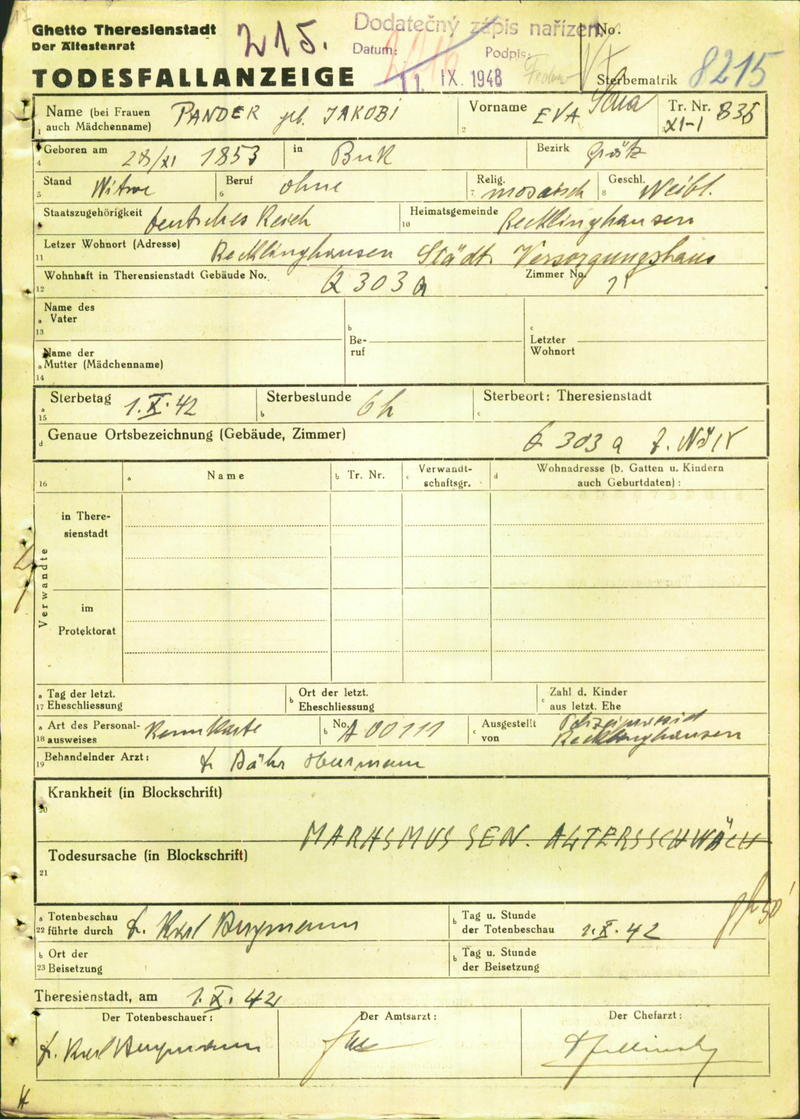 Ghetto Theresienstadt
Der Ältestenrat
TODESFALLANZEIGE
215.
Dodatečný zápis nařízen
No.
Datum: Podpis:
11. IX. 1948
Sterbematrik 8215
Name (bei Frauen auch Mädchenname) PANDER geb. JAKOBI
1
Vorname EVA Sara
2
Tr. Nr. 835
XI-1
3
Geboren am 28/XI 1853 in Buk Bezirk Grätz
4
Stand Witwe Beruf ohne Relig. mosaisch Geschl. Weibl.
5 6 7 8
Staatszugehörigkeit deutsches Reich Heimatsgemeinde Recklinghausen
10
Letzer Wohnort (Adresse) Recklinghausen Städt. Versorgungshaus
11
Wohnhaft in Therensienstadt Gebäude No. Q 303 a Zimmer No.
12
Name des
a Vater
13
b
Be-
ruf
c
Letzter
Wohnort
Name der
a Mutter (Mädchenname)
14
Sterbetag 1.X.42 Sterbestunde 6h Sterbeort: Theresienstadt
a 15 b c
d Genaue Ortsbezeichnung (Gebäude, Zimmer) Q 303 a
16 a Name b Tr. Nr. c Verwandt-
schaftsgr. d Wohnadresse (b. Gatten u. Kindern
auch Geburtdaten):
Verwandte
in There-
sienstadt
im
Protektorat
a Tag der letzt.
17 Eheschliessung
b Ort der letzt.
Eheschliessung
c Zahl d. Kinder
aus letzt. Ehe
a Art des Personal-
18 ausweises Kennkarte
b No. A 00111
c Ausgestellt
von Polizeipräsid
Recklinghausen
Behandelnder Arzt: Dr. Bähr Hermann
19
Krankheit (in Blockschrift)
20
MARASMUS SEN. ALTERSSCHWÄCH
Todesursache (in Blockschrift)
21
a Totenbeschau
22 führte durch Dr. Karl Bergmann
b Tag u. Stunde
der Totenbeschau 1.X.42
b Ort der
23 Beisetzung
b Tag u. Stunde
der Beisetzung
Theresienstadt, am 1.X.42
Der Totenbeschauer: Der Amtsarzt: Der Chefarzt:
Dr. Karl Bergmann